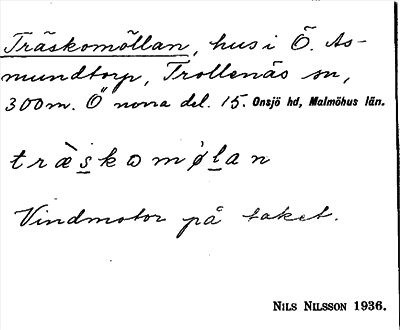 Träskomöllan, hus i Ö. As-
mundtorp, Trollenäs sn,
300 m. Ö norra del. 15. Onsjö hd, Malmöhus län.
træ̀s̲komǿl̲an
Vindmotor på taket.
NILS NILSSON 1936.